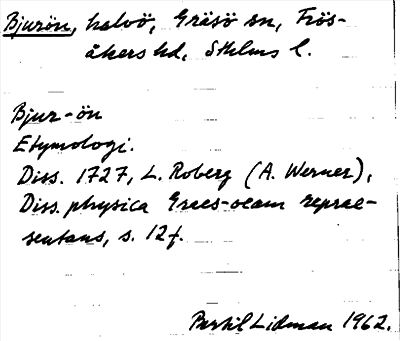 Bjurön, halvö, Gräsö sn, Frös-
åkers hd, Sthlms l.
Bjur-ön
Etymologi.
Diss. 1727, L. Roberg (A. Werner),
Diss. physica Graes-oeam reprae-
sentans, s. 12f.
Bertil Lidman 1962.